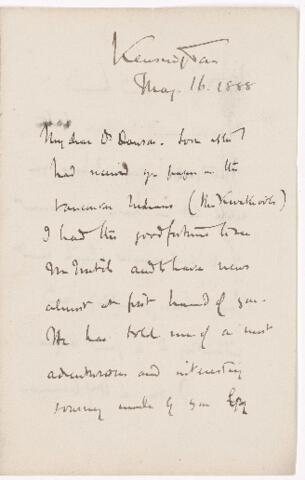 Kensington
May. 16. 1888
My dear Dr Dawson. Soon after I
had received yr paper on the
Vancouver Indians (the Kwakiools)
I had the good fortune to see
Mr and to have news
almost at first hand of you.
He has told me of a most
adventurous and interesting
journey made by you